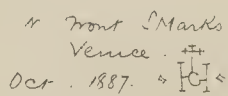 Front S Marks
Venice.
Oct. 1887.